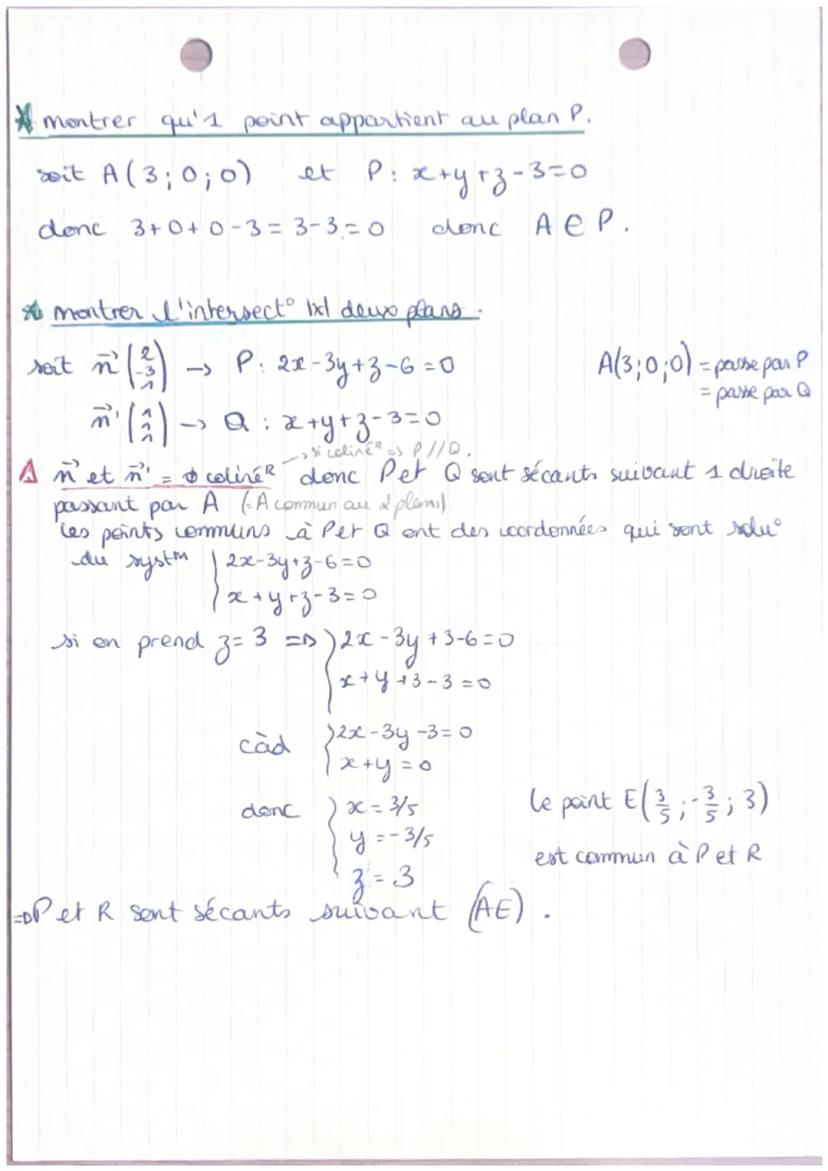 * montrer qu'1 point appartient au plan P.
soit A(3;0;0) et P: x+y+z-3=0
donc 3+0+0-3=3-3=0 donc A ∈ P.
* montrer l'intersect° deux plans.
soit n⃗ (2 -3 1) → P: 2x-3y+z-6=0
A(3;0;0) = passe par P
= passe par Q
n⃗' (1 1 1) → Q: x+y+z-3=0
→ si colinéR => P // Q.
⚠ n⃗ et n⃗' = ϕ colinéR donc P et Q sont sécants suivant 1 droite
passant par A (=A commun au 2 plans)
Les points communs à P et Q ont des coordonnées qui sont solu°
du systm { 2x-3y+z-6=0
x+y+z-3=0
si on prend z=3 => { 2x-3y+3-6=0
x+y+3-3=0
càd { 2x-3y-3=0
x+y=0
donc { x=3/5
y=-3/5
z=3
le point E(3/5;-3/5;3)
est commun à P et R
=> P et R sont sécants suivant (AE).